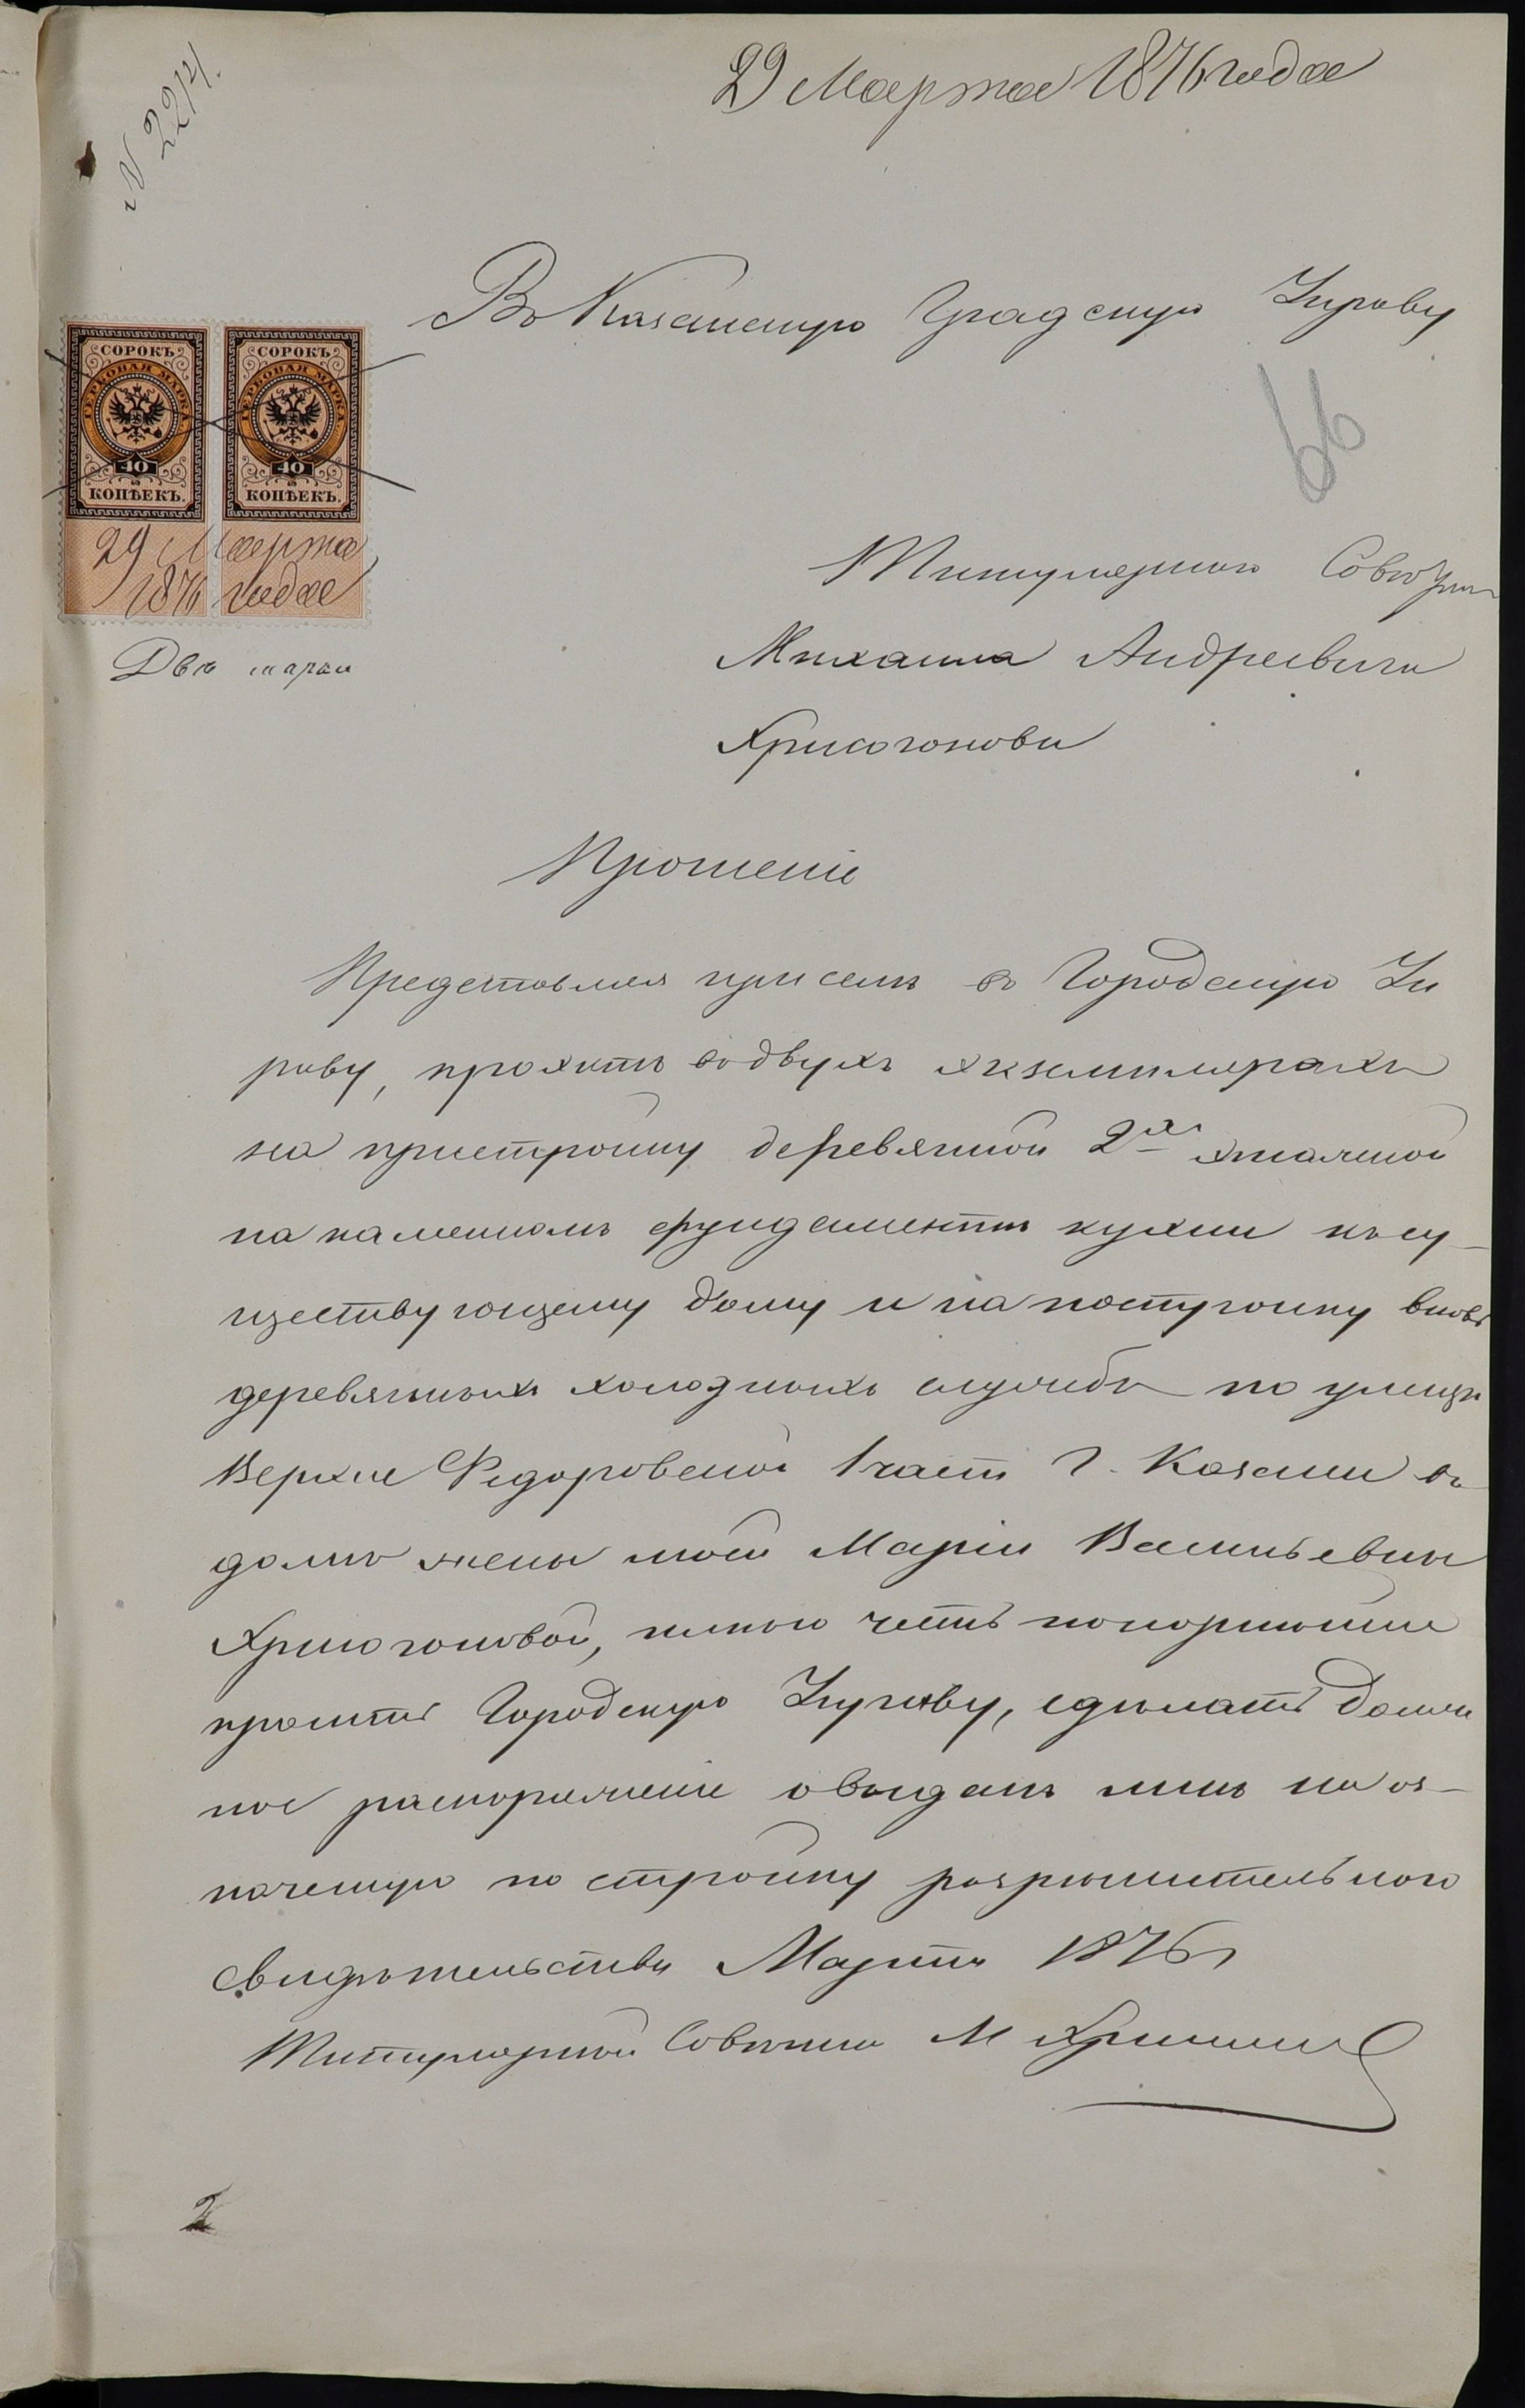 29 Марта 1876 года
№ 2214.
Въ Казанскую Градскую Управу
СОРОКЪ СОРОКЪ
ГЕРБОВАЯ МАРКА ГЕРБОВАЯ МАРКА
40 40
КОПѢЕКЪ. КОПѢЕКЪ.
66
29 Марта
1876 года
Две марки
Титулярнаго Советни
Михаила Андреевича
Хрисогонова
Прошеніе
Представляя при семъ въ Городскую Уп
раву, проэктъ въ двухъ экземплярахъ
на пристройку деревянной 2х этажной
на каменномъ фундаментѣ кухни къ су-
ществующему дому и на постройку вновь
деревянныхъ холодныхъ службъ по улицѣ
Верхне Федоровской 1 части г. Казани въ
домѣ жены моей Маріи Васильевны
Хрисогоновой, имѣю честь покорнейше
просить Городскую Управу, сдѣлать долж
ное распоряженіе о выдачѣ мнѣ на оз-
наченную постройку разрѣшительного
свидѣтельства Марта 1876 г
Титулярный Советникъ М Хрисогонов
2